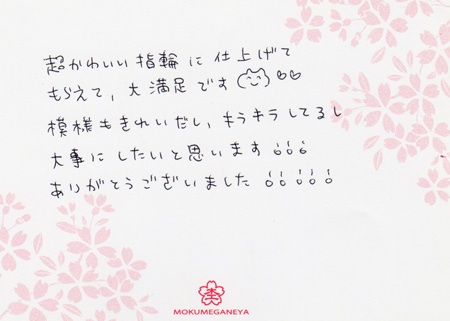 超かわいい指輪に仕上げて
もらえて、大満足です♡♡
模様もきれいだし、キラキラしてるし
大事にしたいと思います!!!
ありがとうございました!!!!!
MOKUMEGANEYA